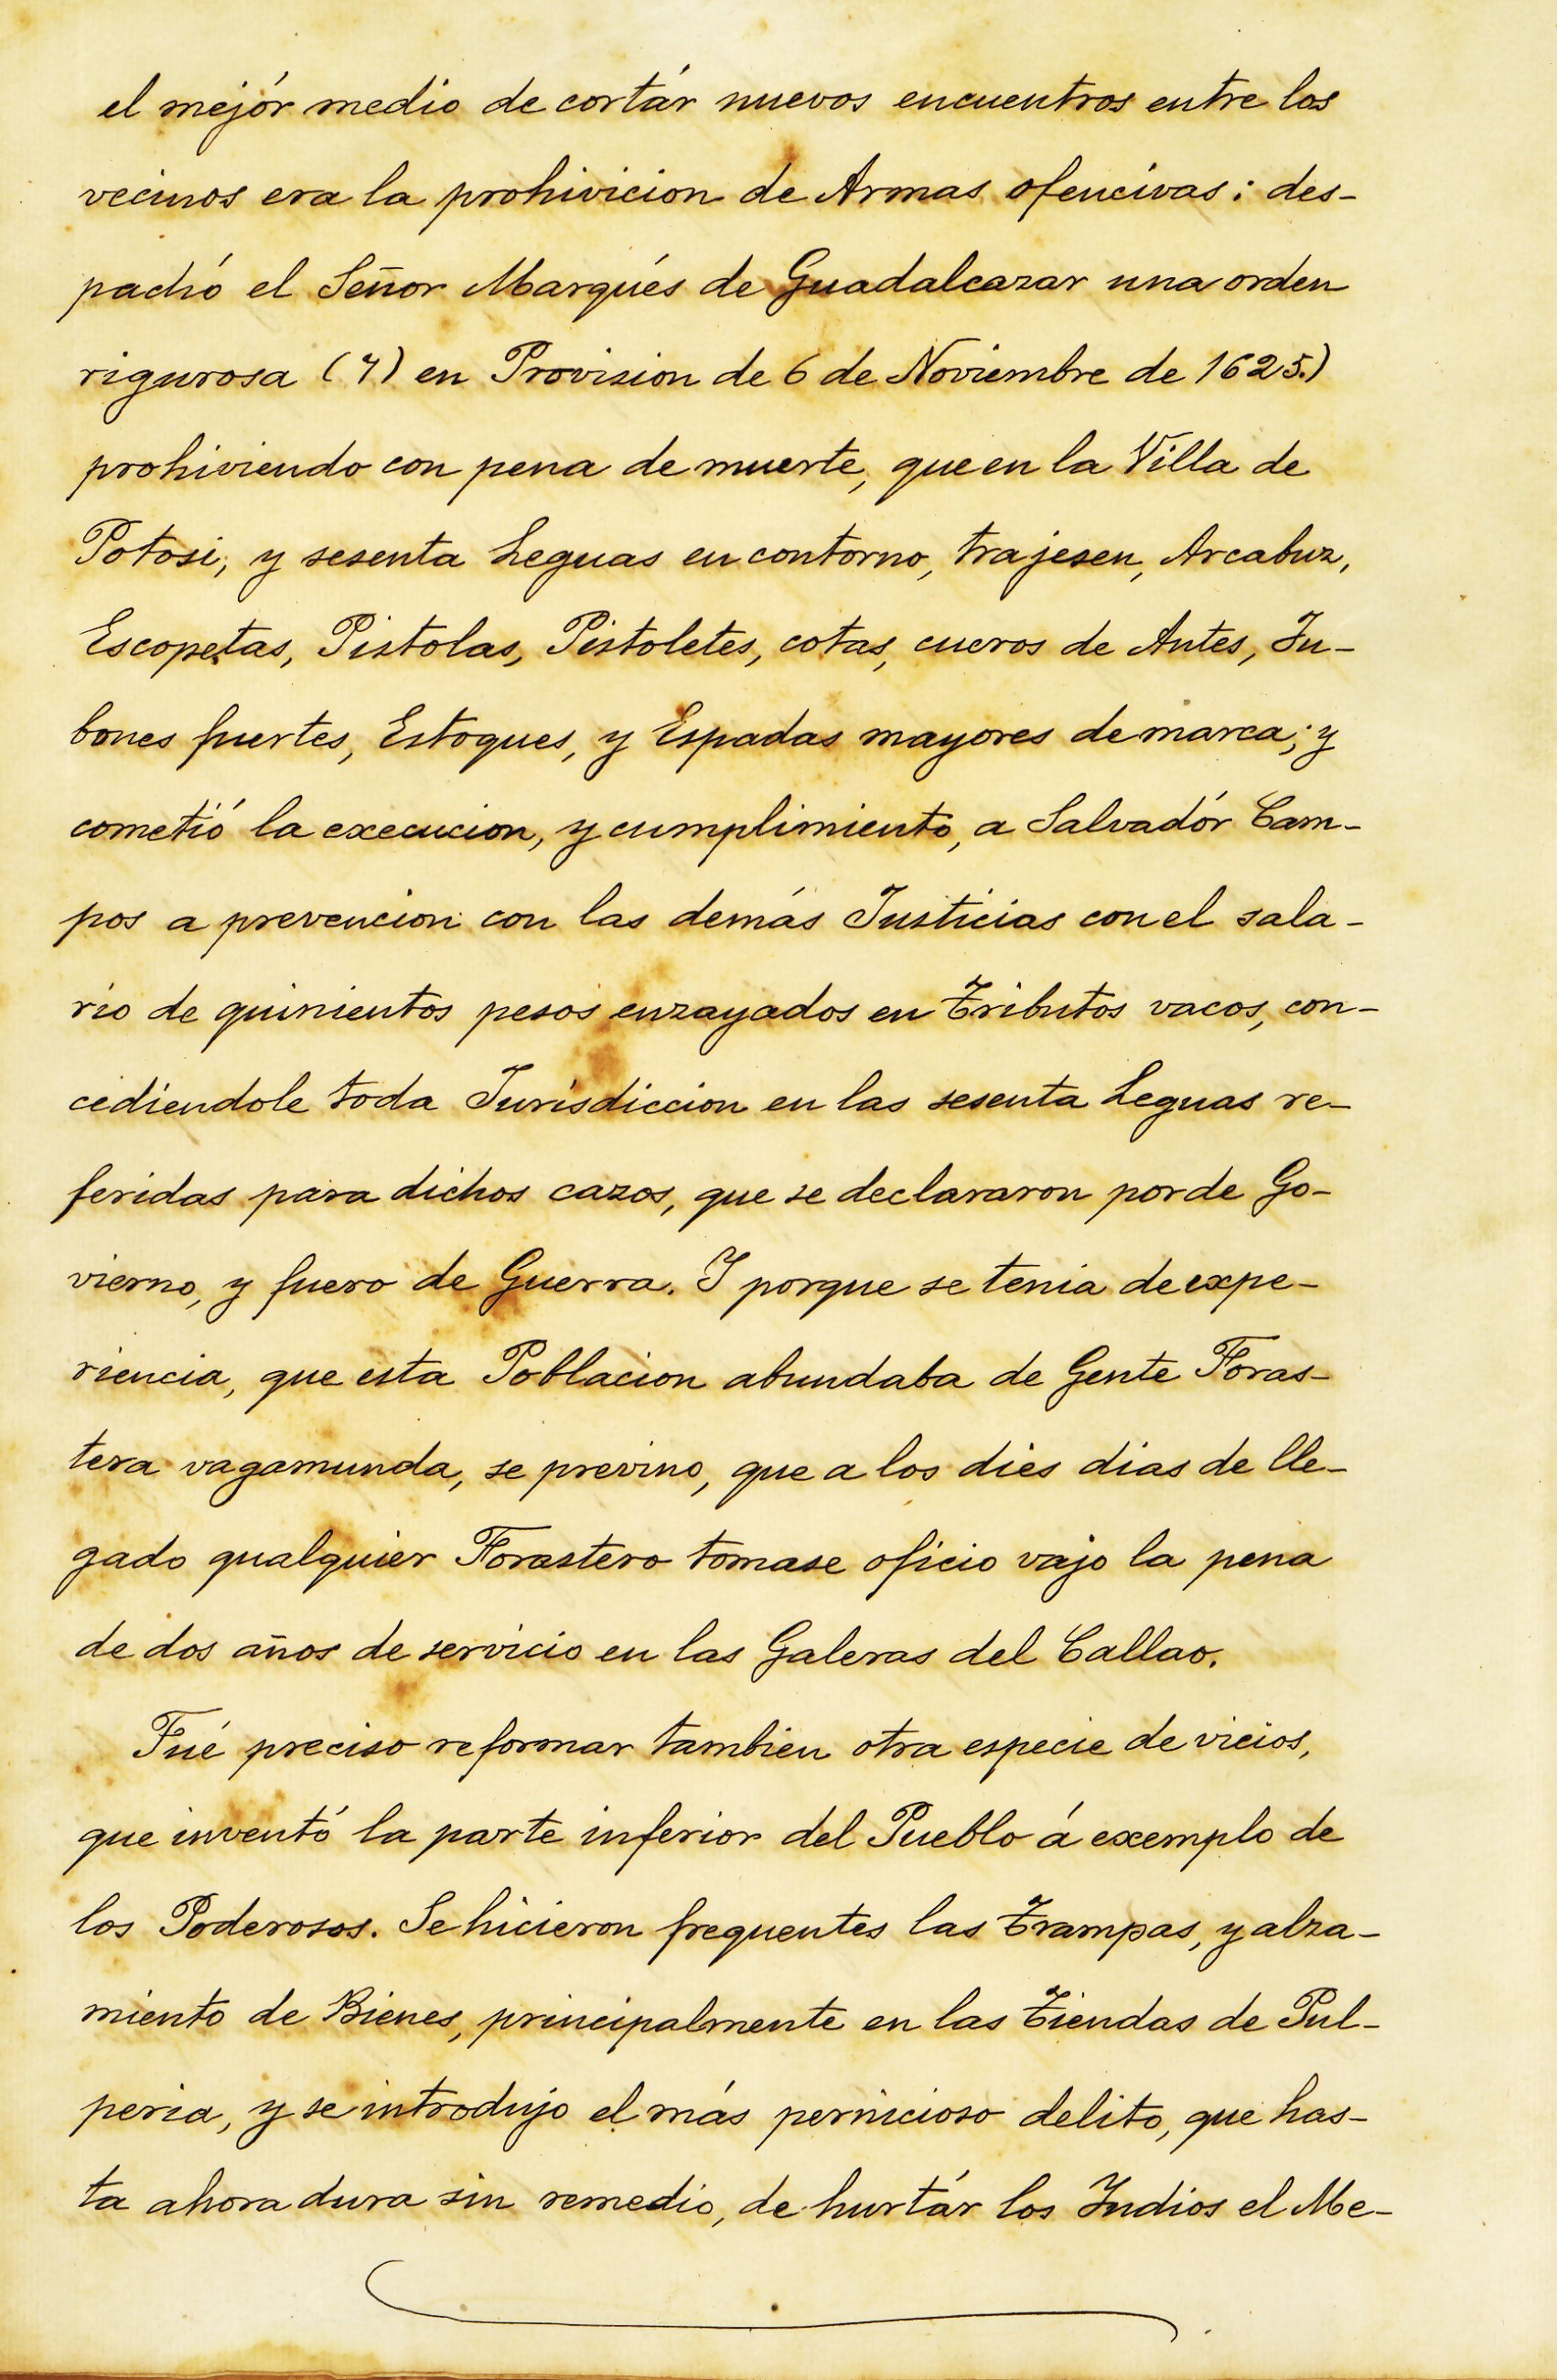 el mejór medio de cortár nuevos encuentros entre los
vecinos era la prohivicion de Armas ofencivas: des-
pachó el Señor Marqués de Guadalcazar una orden
rigurosa (7) en Provision de 6 de Noviembre de 1625.)
prohiviendo con pena de muerte, que en la Villa de
Potosi, y sesenta Leguas en contorno, trajesen, Arcabuz,
Escopetas, Pistolas, Pistoletes, cotas, cueros de Antes, Ju-
bones fuertes, Estoques, y Espadas mayores de marca; y
cometió la execucion, y cumplimiento, a Salvadór Cam-
pos a prevencion con las demás Justicias con el sala-
rio de quinientos pesos enzayados en Tributos vacos, con-
cediendole toda Jurisdiccion en las sesenta Leguas re-
feridas para dichos cazos, que se declararon por de Go-
vierno, y fuero de Guerra. I porque se tenia de expe-
riencia, que esta Poblacion abundaba de Gente Foras-
tera vagamunda, se previno, que a los dies dias de lle-
gado qualquier Forastero tomase oficio vajo la pena
de dos años de servicio en las Galeras del Callao.
Fué preciso reformar tambien otra especie de vicios,
que inventó la parte inferior del Pueblo á exemplo de
los Poderosos. Se hicieron frequentes las Trampas, y alza-
miento de Bienes, principalmente en las Tiendas de Pul-
peria, y se introdujo el más pernicioso delito, que has-
ta ahora dura sin remedio, de hurtár los Indios el Me-